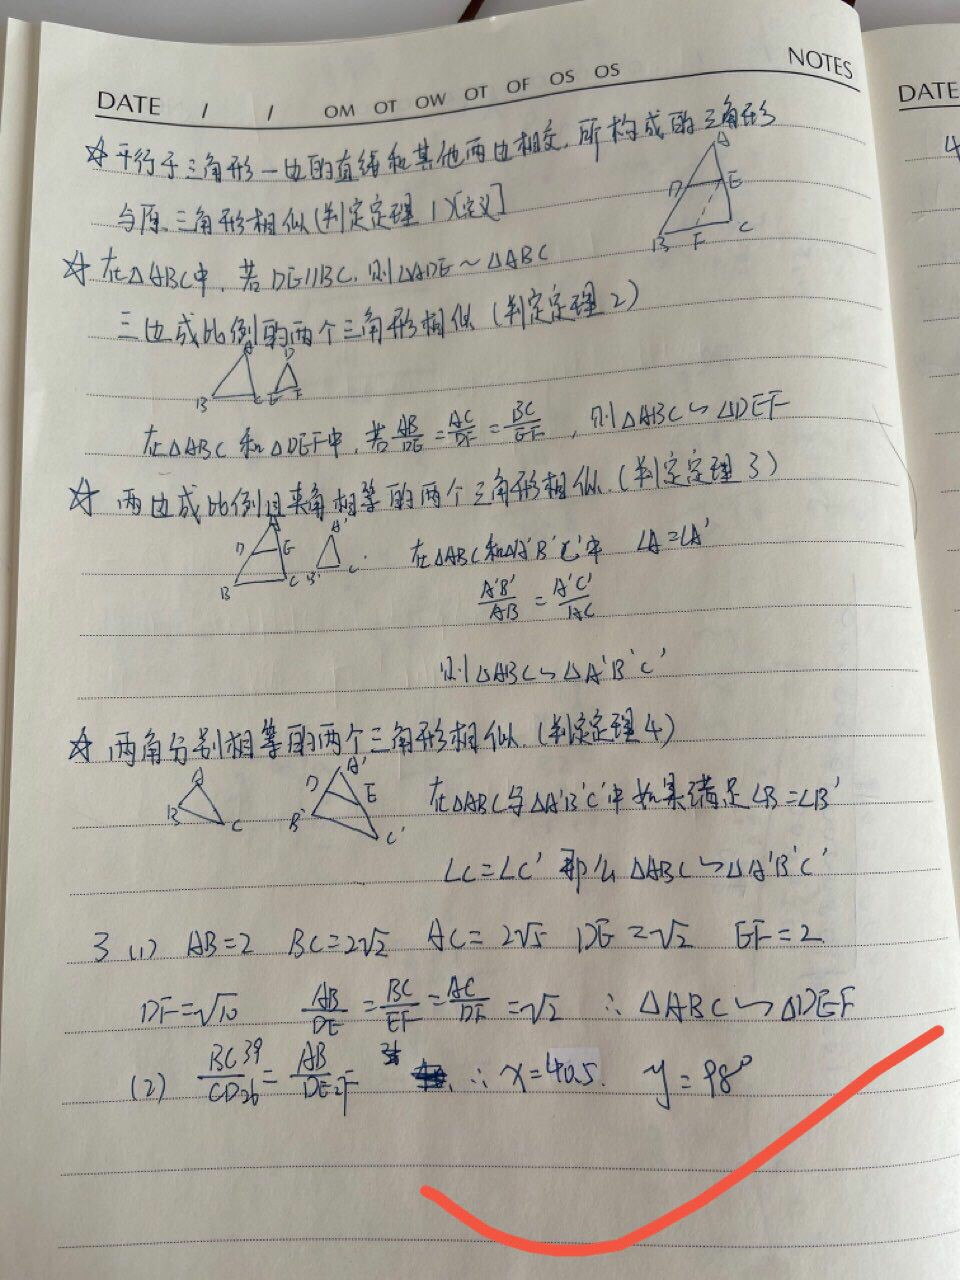 NOTES
DATE / / OM OT OW OT OF OS OS
DATE
4
☆平行于三角形一边的直线和其他两边相交,所构成的三角形
与原三角形相似(判定定理1)[定义]
A
D E
B F C
☆在△ABC中,若DE//BC,则△ADE∽△ABC
三边成比例的两个三角形相似(判定定理2)
A D
B C E F
在△ABC和△DEF中,若AB/DE=AC/DF=BC/EF,则△ABC∽△DEF
☆两边成比例且夹角相等的两个三角形相似.(判定定理3)
A A'
D E
B C B' C'
在△ABC和△A'B'C'中 ∠A=∠A'
A'B'/AB=A'C'/AC
则△ABC∽△A'B'C'
☆两角分别相等的两个三角形相似.(判定定理4)
A D A' E
B C B' C'
在△ABC与△A'B'C'中如果满足∠B=∠B'
∠C=∠C' 那么△ABC∽△A'B'C'
3 (1) AB=2 BC=2√2 AC=2√5 DE=√2 EF=2
DF=√10 AB/DE=BC/EF=AC/DF=√2 ∴△ABC∽△DEF
(2) BC39/CD26=AB/DE27 ∴x=40.5. y=98°